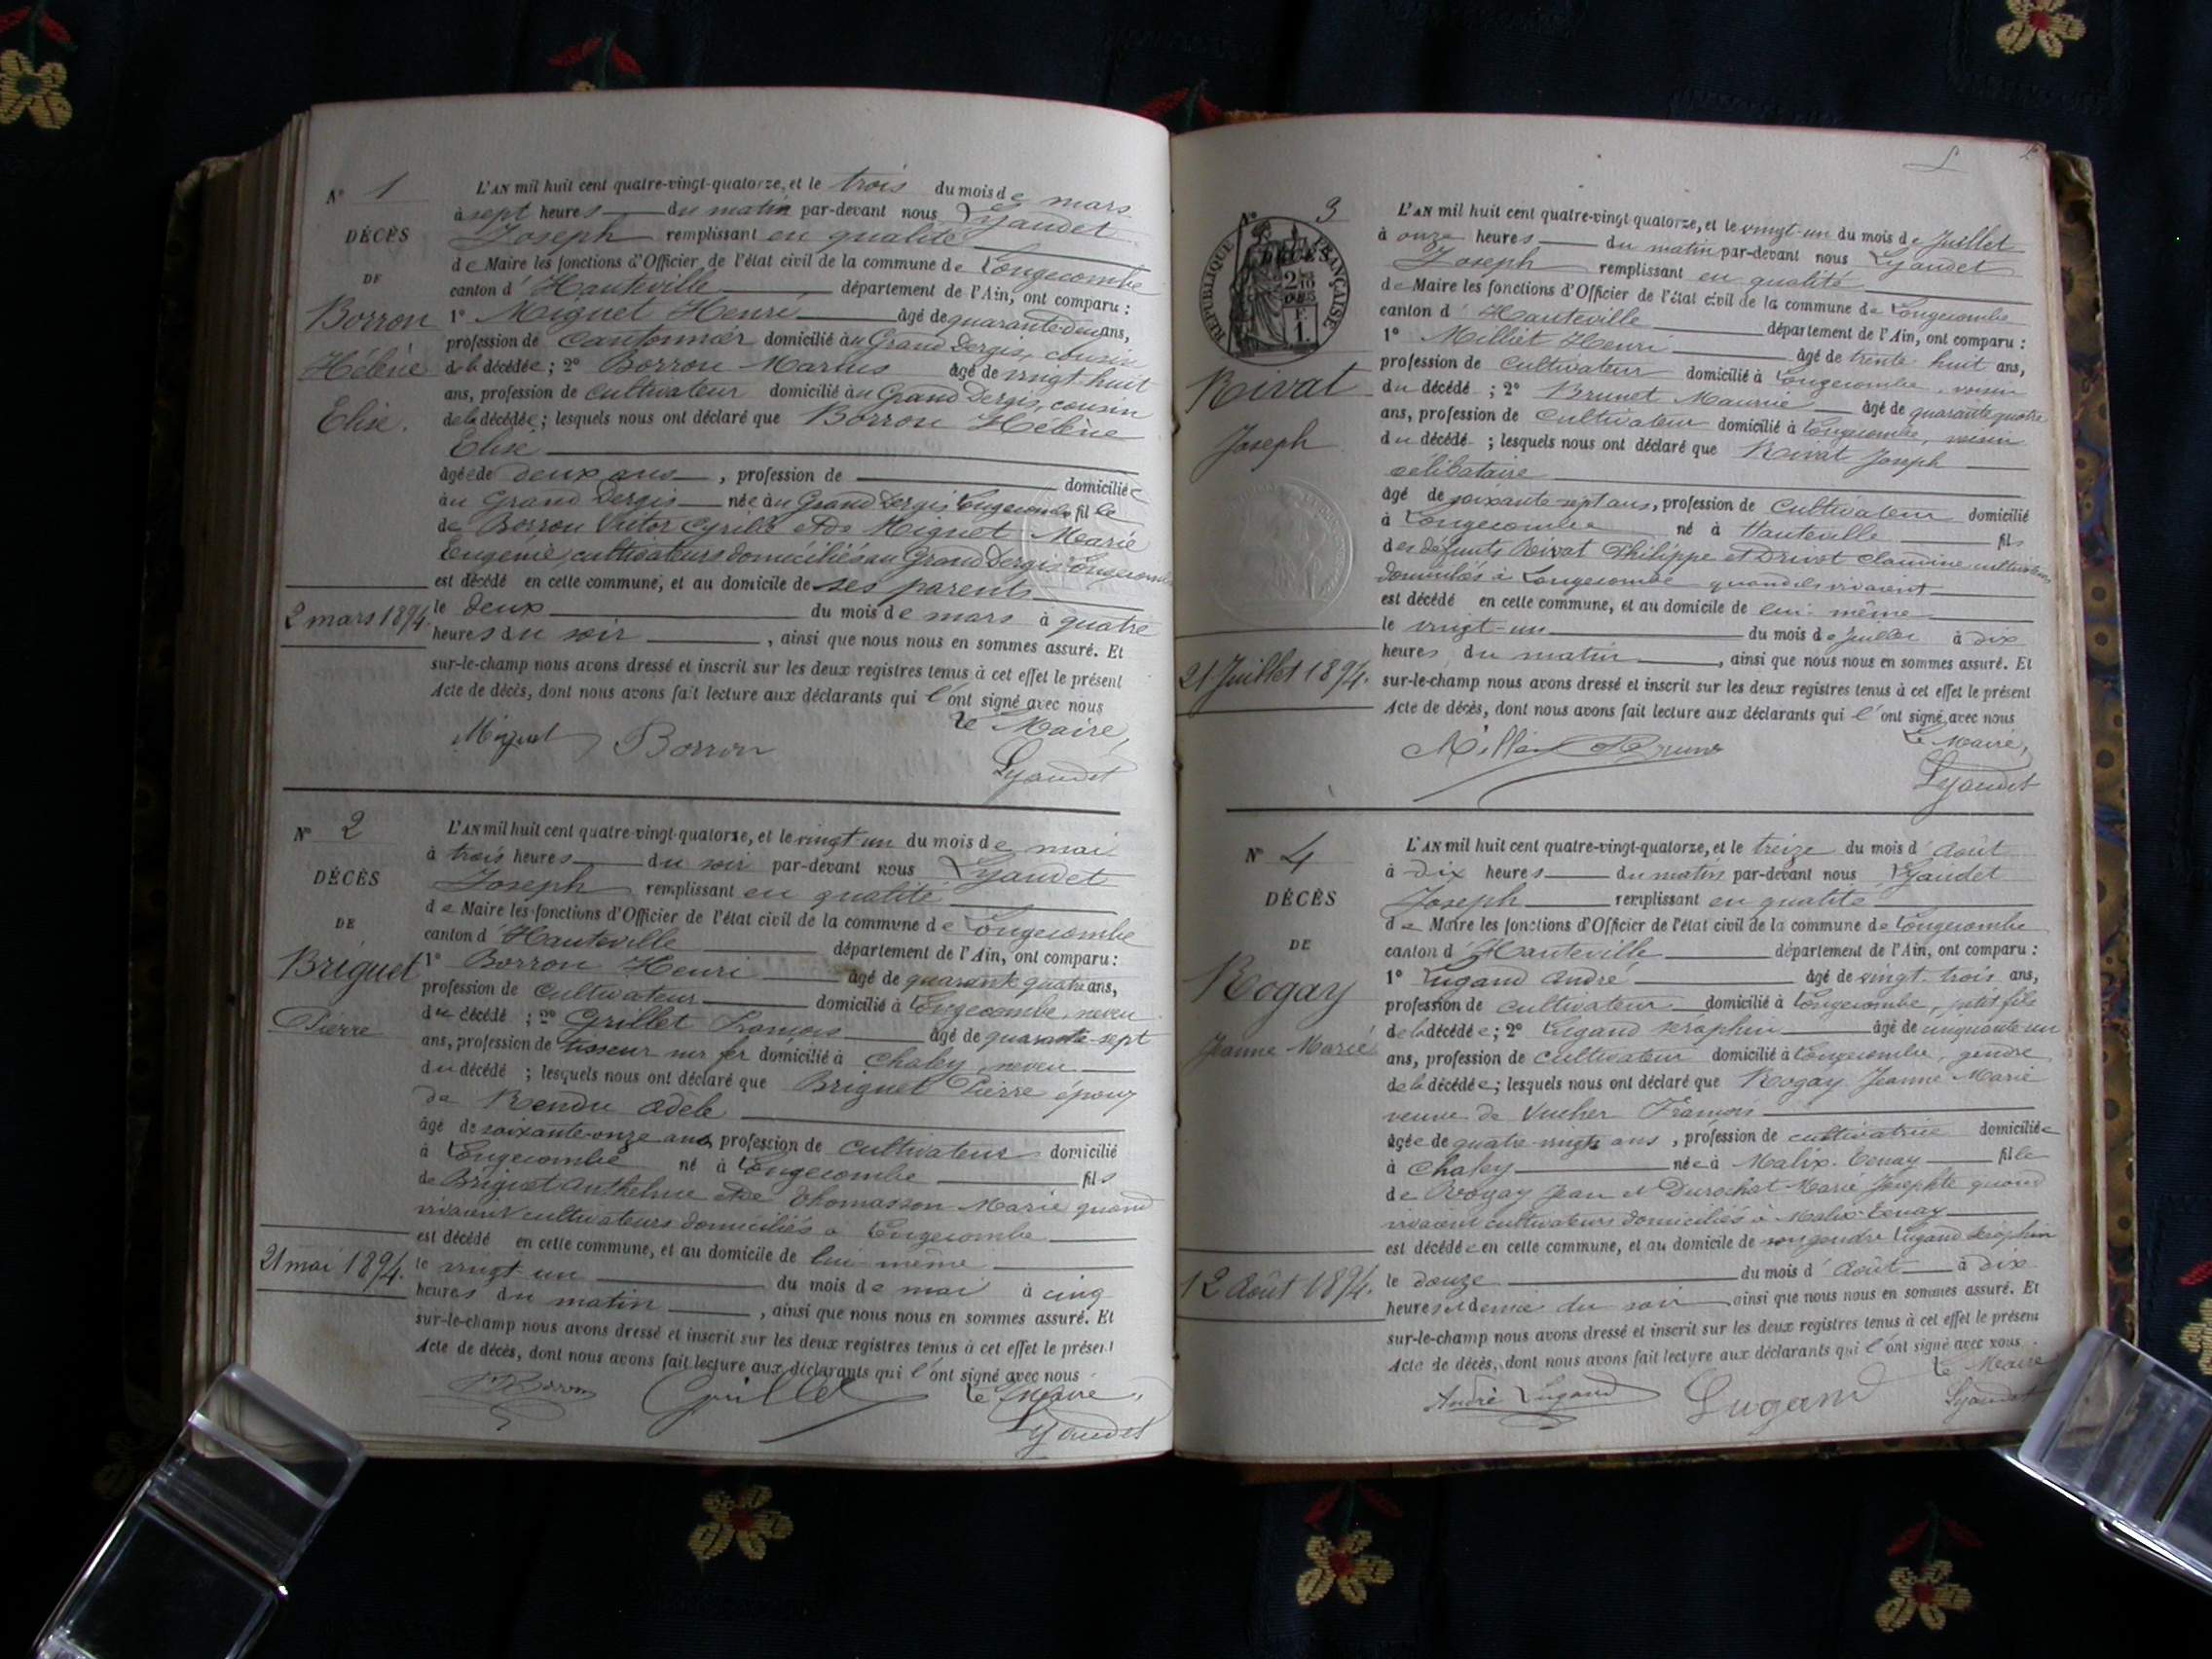 N° 1
DÉCÈS
DE
Borron
Hélène
Elise.
2 mars 1894.
L'AN mil huit cent quatre-vingt-quatorze, et le trois du mois de mars
à sept heures du matin par-devant nous Lyaudet
Joseph remplissant en qualité
de Maire les fonctions d'Officier de l'état civil de la commune de Longecombe
canton d'Hauteville département de l'Ain, ont comparu :
1° Miguet Henri âgé de quarante-deux ans,
profession de Cantonnier domicilié au Grand Dergis, cousin
de la décédée ; 2° Borron Marius âgé de vingt huit
ans, profession de cultivateur domicilié au Grand Dergis, cousin
de la décédée ; lesquels nous ont déclaré que Borron Hélène
Elise
âgée de deux ans, profession de domiciliée
au Grand Dergis née au Grand Dergis Longecombe fille
de Borron Victor Cyrille et de Miguet Marie
Eugénie, cultivateurs domiciliés au Grand Dergis Longecombe
est décédé en cette commune, et au domicile de ses parents
le deux du mois de mars à quatre
heures du soir, ainsi que nous nous en sommes assuré. Et
sur-le-champ nous avons dressé et inscrit sur les deux registres tenus à cet effet le présent
Acte de décès, dont nous avons fait lecture aux déclarants qui l'ont signé avec nous
Le Maire,
Miguet Borron
Lyaudet
N° 2
DÉCÈS
DE
Briguet
Pierre
21 mai 1894.
L'AN mil huit cent quatre-vingt-quatorze, et le vingt-un du mois de mai
à trois heures du soir par-devant nous Lyaudet
Joseph remplissant en qualité
de Maire les fonctions d'Officier de l'état civil de la commune de Longecombe
canton d'Hauteville département de l'Ain, ont comparu :
1° Borron Henri âgé de quarante quatre ans,
profession de cultivateur domicilié à Longecombe, neveu
du décédé ; 2° Grillet François âgé de quarante-sept
ans, profession de tisseur sur fer domicilié à Chaley, neveu
du décédé ; lesquels nous ont déclaré que Briguet Pierre époux
de Rendu Adèle
âgé de soixante-onze ans, profession de cultivateur domicilié
à Longecombe né à Longecombe fils
de Briguet Anthelme et de Thomasson Marie quand
vivaient cultivateurs domiciliés à Longecombe
est décédé en cette commune, et au domicile de lui même
le vingt-un du mois de mai à cinq
heures du matin, ainsi que nous nous en sommes assuré. Et
sur-le-champ nous avons dressé et inscrit sur les deux registres tenus à cet effet le présent
Acte de décès, dont nous avons fait lecture aux déclarants qui l'ont signé avec nous
Borron Grillet Le Maire,
Lyaudet
N° 3
RÉPUBLIQUE FRANÇAISE
DÉCÈS
Rivat
Joseph
21 Juillet 1894.
L'AN mil huit cent quatre-vingt quatorze, et le vingt-un du mois de Juillet
à onze heures du matin par-devant nous Lyaudet
Joseph remplissant en qualité
de Maire les fonctions d'Officier de l'état civil de la commune de Longecombe
canton d'Hauteville département de l'Ain, ont comparu :
1° Milliet Henri âgé de trente huit ans,
profession de cultivateur domicilié à Longecombe, voisin
du décédé ; 2° Brunet Maurice âgé de quarante quatre
ans, profession de cultivateur domicilié à Longecombe, voisin
du décédé ; lesquels nous ont déclaré que Rivat Joseph
célibataire
âgé de soixante-sept ans, profession de cultivateur domicilié
à Longecombe né à Hauteville fils
des défunts Rivat Philippe et Drivot Claudine cultivateurs
domiciliés à Longecombe quand ils vivaient
est décédé en cette commune, et au domicile de lui même
le vingt-un du mois de Juillet à dix
heures du matin, ainsi que nous nous en sommes assuré. Et
sur-le-champ nous avons dressé et inscrit sur les deux registres tenus à cet effet le présent
Acte de décès, dont nous avons fait lecture aux déclarants qui l'ont signé avec nous
Le Maire,
Lyaudet
N° 4
DÉCÈS
DE
Rogay
Jeanne Marie
12 Août 1894.
L'AN mil huit cent quatre-vingt-quatorze, et le treize du mois d'août
à dix heures du matin par-devant nous Lyaudet
Joseph remplissant en qualité
de Maire les fonctions d'Officier de l'état civil de la commune de Longecombe
canton d'Hauteville département de l'Ain, ont comparu :
1° Lugand André âgé de vingt-trois ans,
profession de cultivateur domicilié à Longecombe, petit fils
de la décédée ; 2° Lugand Séraphin âgé de cinquante un
ans, profession de cultivateur domicilié à Longecombe, gendre
de la décédée ; lesquels nous ont déclaré que Rogay Jeanne Marie
veuve de Vucher François
âgée de quatre-vingts ans, profession de cultivatrice domiciliée
à Chaley née à Malix-Tenay fille
de Rogay Jean et Durochat Marie Josephte quand
vivaient cultivateurs domiciliés à Malix-Tenay
est décédée en cette commune, et au domicile de son gendre Lugand Séraphin
le douze du mois d'août à dix
heures et demie du soir ainsi que nous nous en sommes assuré. Et
sur-le-champ nous avons dressé et inscrit sur les deux registres tenus à cet effet le présent
Acte de décès, dont nous avons fait lecture aux déclarants qui l'ont signé avec nous.
Le Maire
André Lugand Lugand Lyaudet